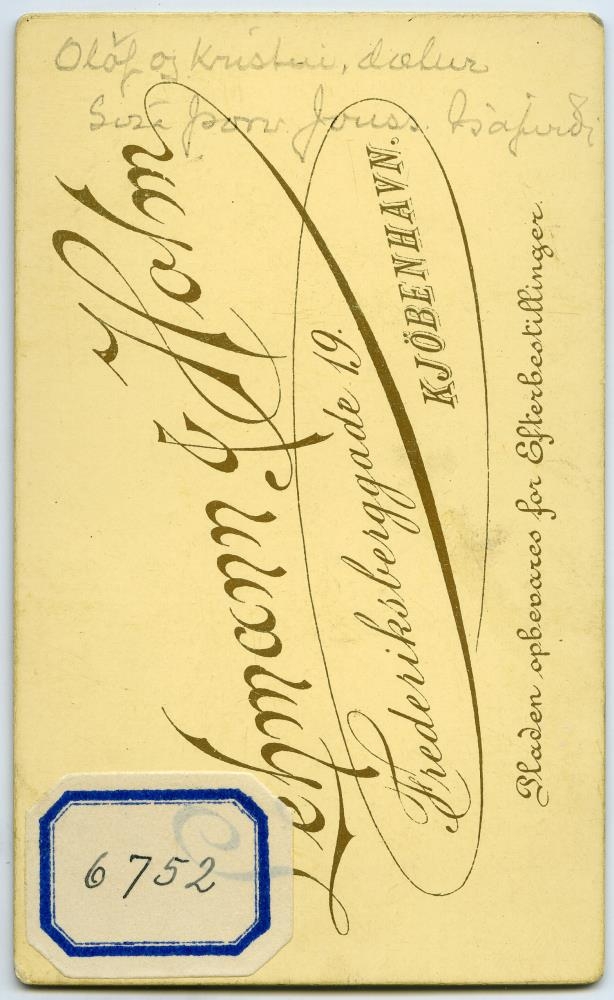 Ólöf og Kristín, dætur
Þorv. Jónss. Ísafirði
Holm
Frederiksberggade 19.
KJÖBENHAVN.
Pladen opbevares for Efterbestillinger.
6752